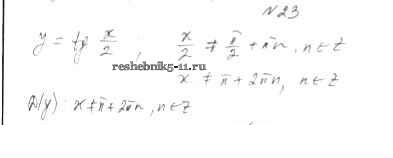 №23
y = tg x/2 ; x/2 ≠ π/2 + πn, n ∈ Z
reshebnik5-11.ru
x ≠ π + 2πn, n ∈ Z
D(y): x ≠ π + 2πn, n ∈ Z